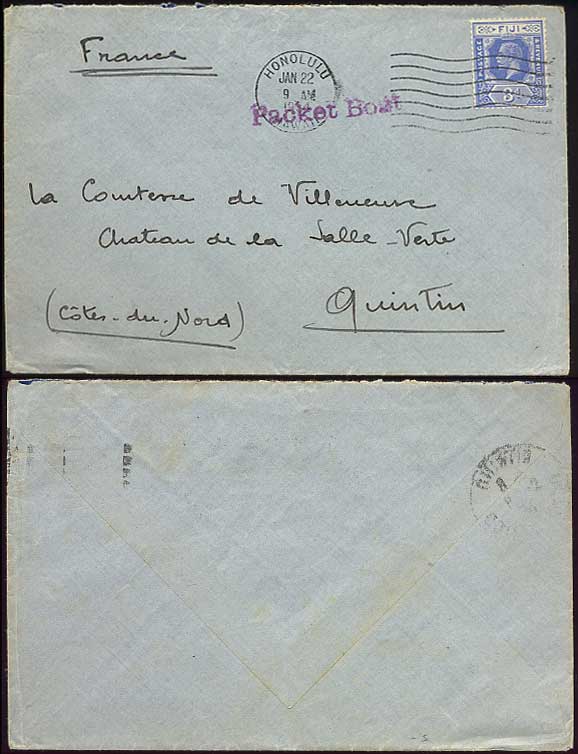 France
FIJI
POSTAGE
3d
HONOLULU
JAN 22
9 AM
HAWAII
Packet Boat
La Comtesse de Villeneuve
Chateau de la Salle-Verte
Quintin
(Côtes-du-Nord)
QUINTIN